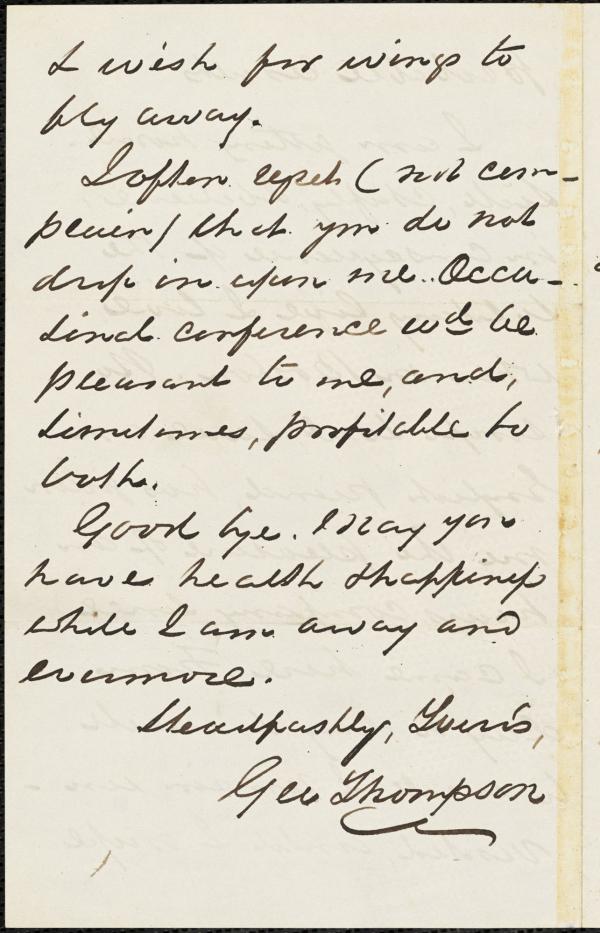 I wish for wings to
fly away.
I often regret (not com-
plain) that you do not
drop in upon me. Occa-
sional conference wd be
pleasant to me, and,
sometimes, profitable to
both.
Good bye. May you
have health & happiness
while I am away and
evermore.
Steadfastly, Yours,
Geo Thompson